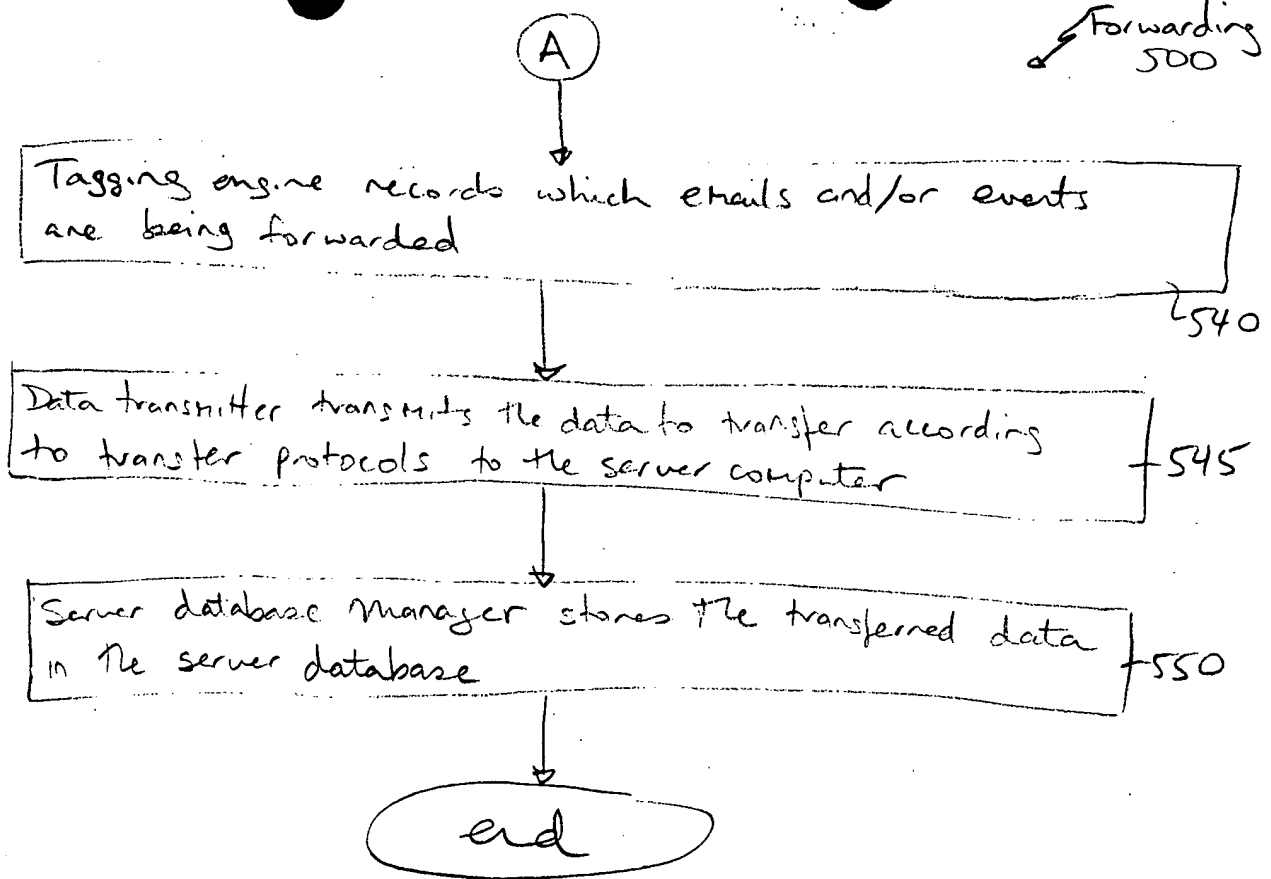 Forwarding
500
A
Tagging engine records which emails and/or events
are being forwarded
540
Data transmitter transmits the data to transfer according
to transfer protocols to the server computer
545
Server database manager stores the transferred data
in the server database
550
end